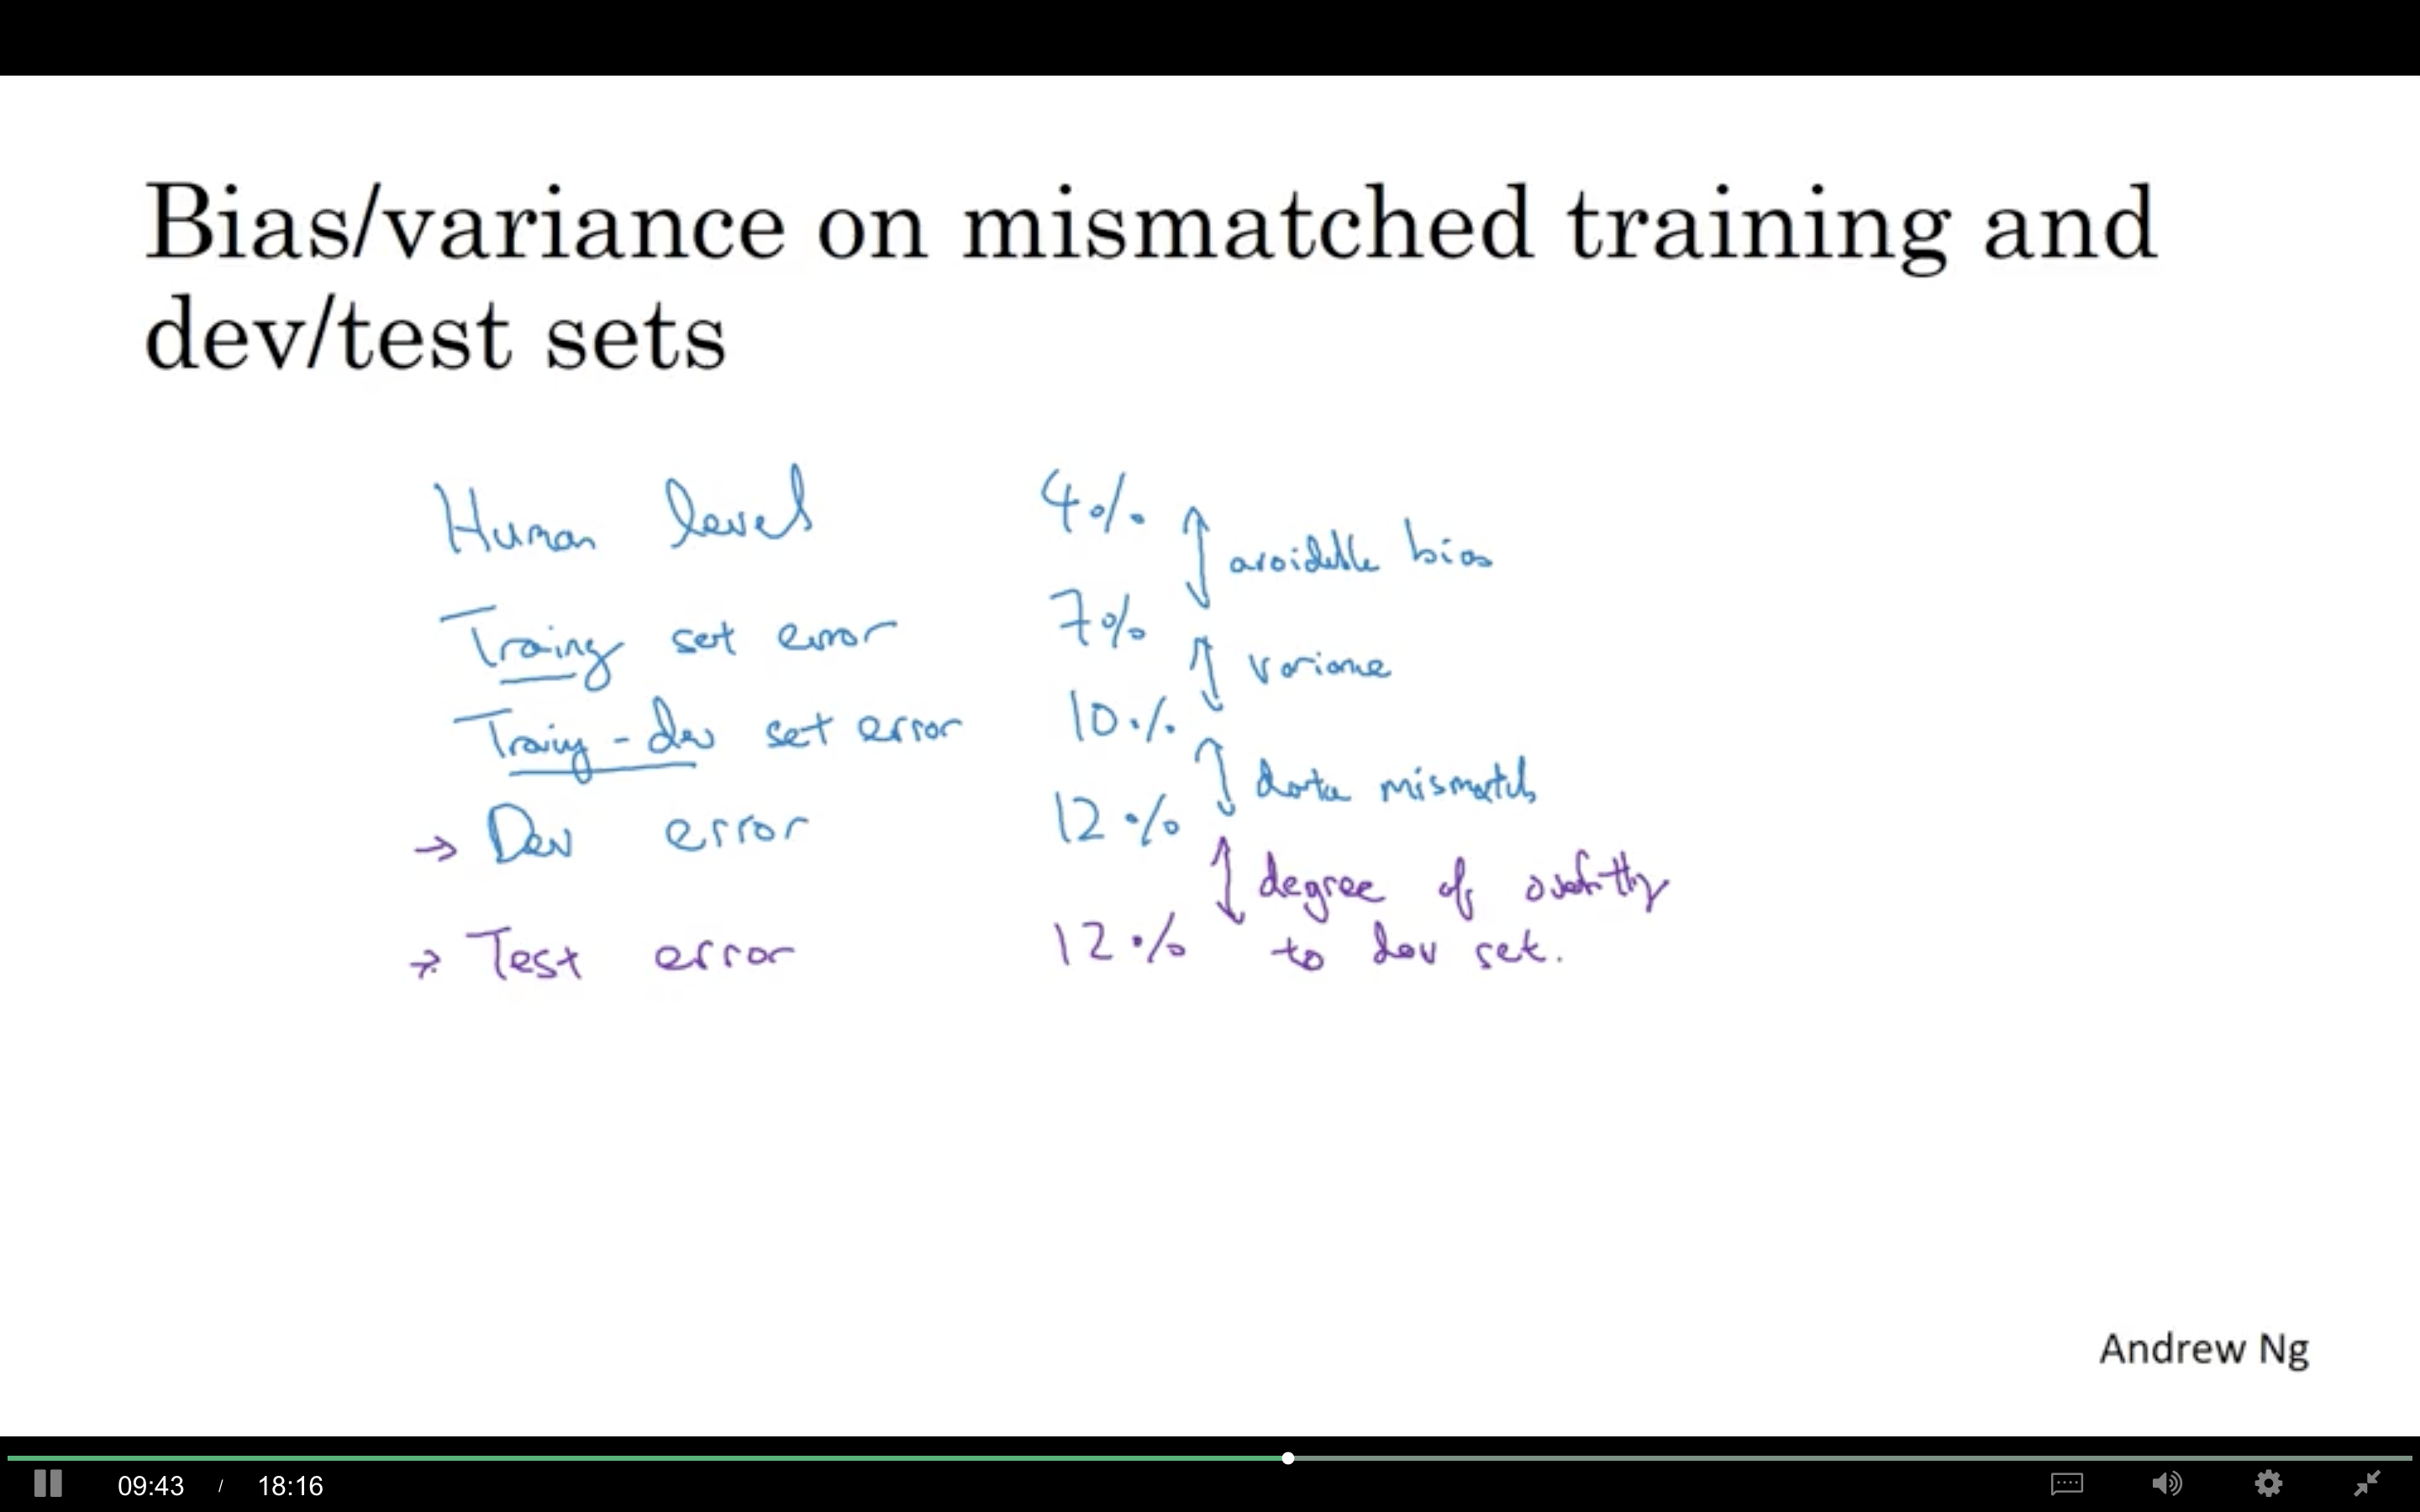 Bias/variance on mismatched training and
dev/test sets
Human level 4%
avoidable bias
Training set error 7%
variance
Training-dev set error 10%
data mismatch
→ Dev error 12%
degree of overfitting
→ Test error 12% to dev set.
Andrew Ng
09:43 / 18:16